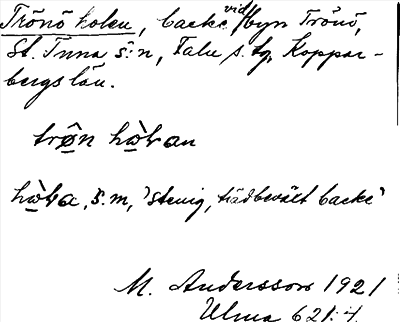 Trönö kolen, backe vid byn Trönö,
St. Tuna s:n, Falu s. tg, Koppar-
bergs län.
trø̂n hɷ̀ɫan
hɷ̀ɫa, s. m, 'stenig, trädbeväxt backe'
M. Andersson 1921
Ulma 621:4.